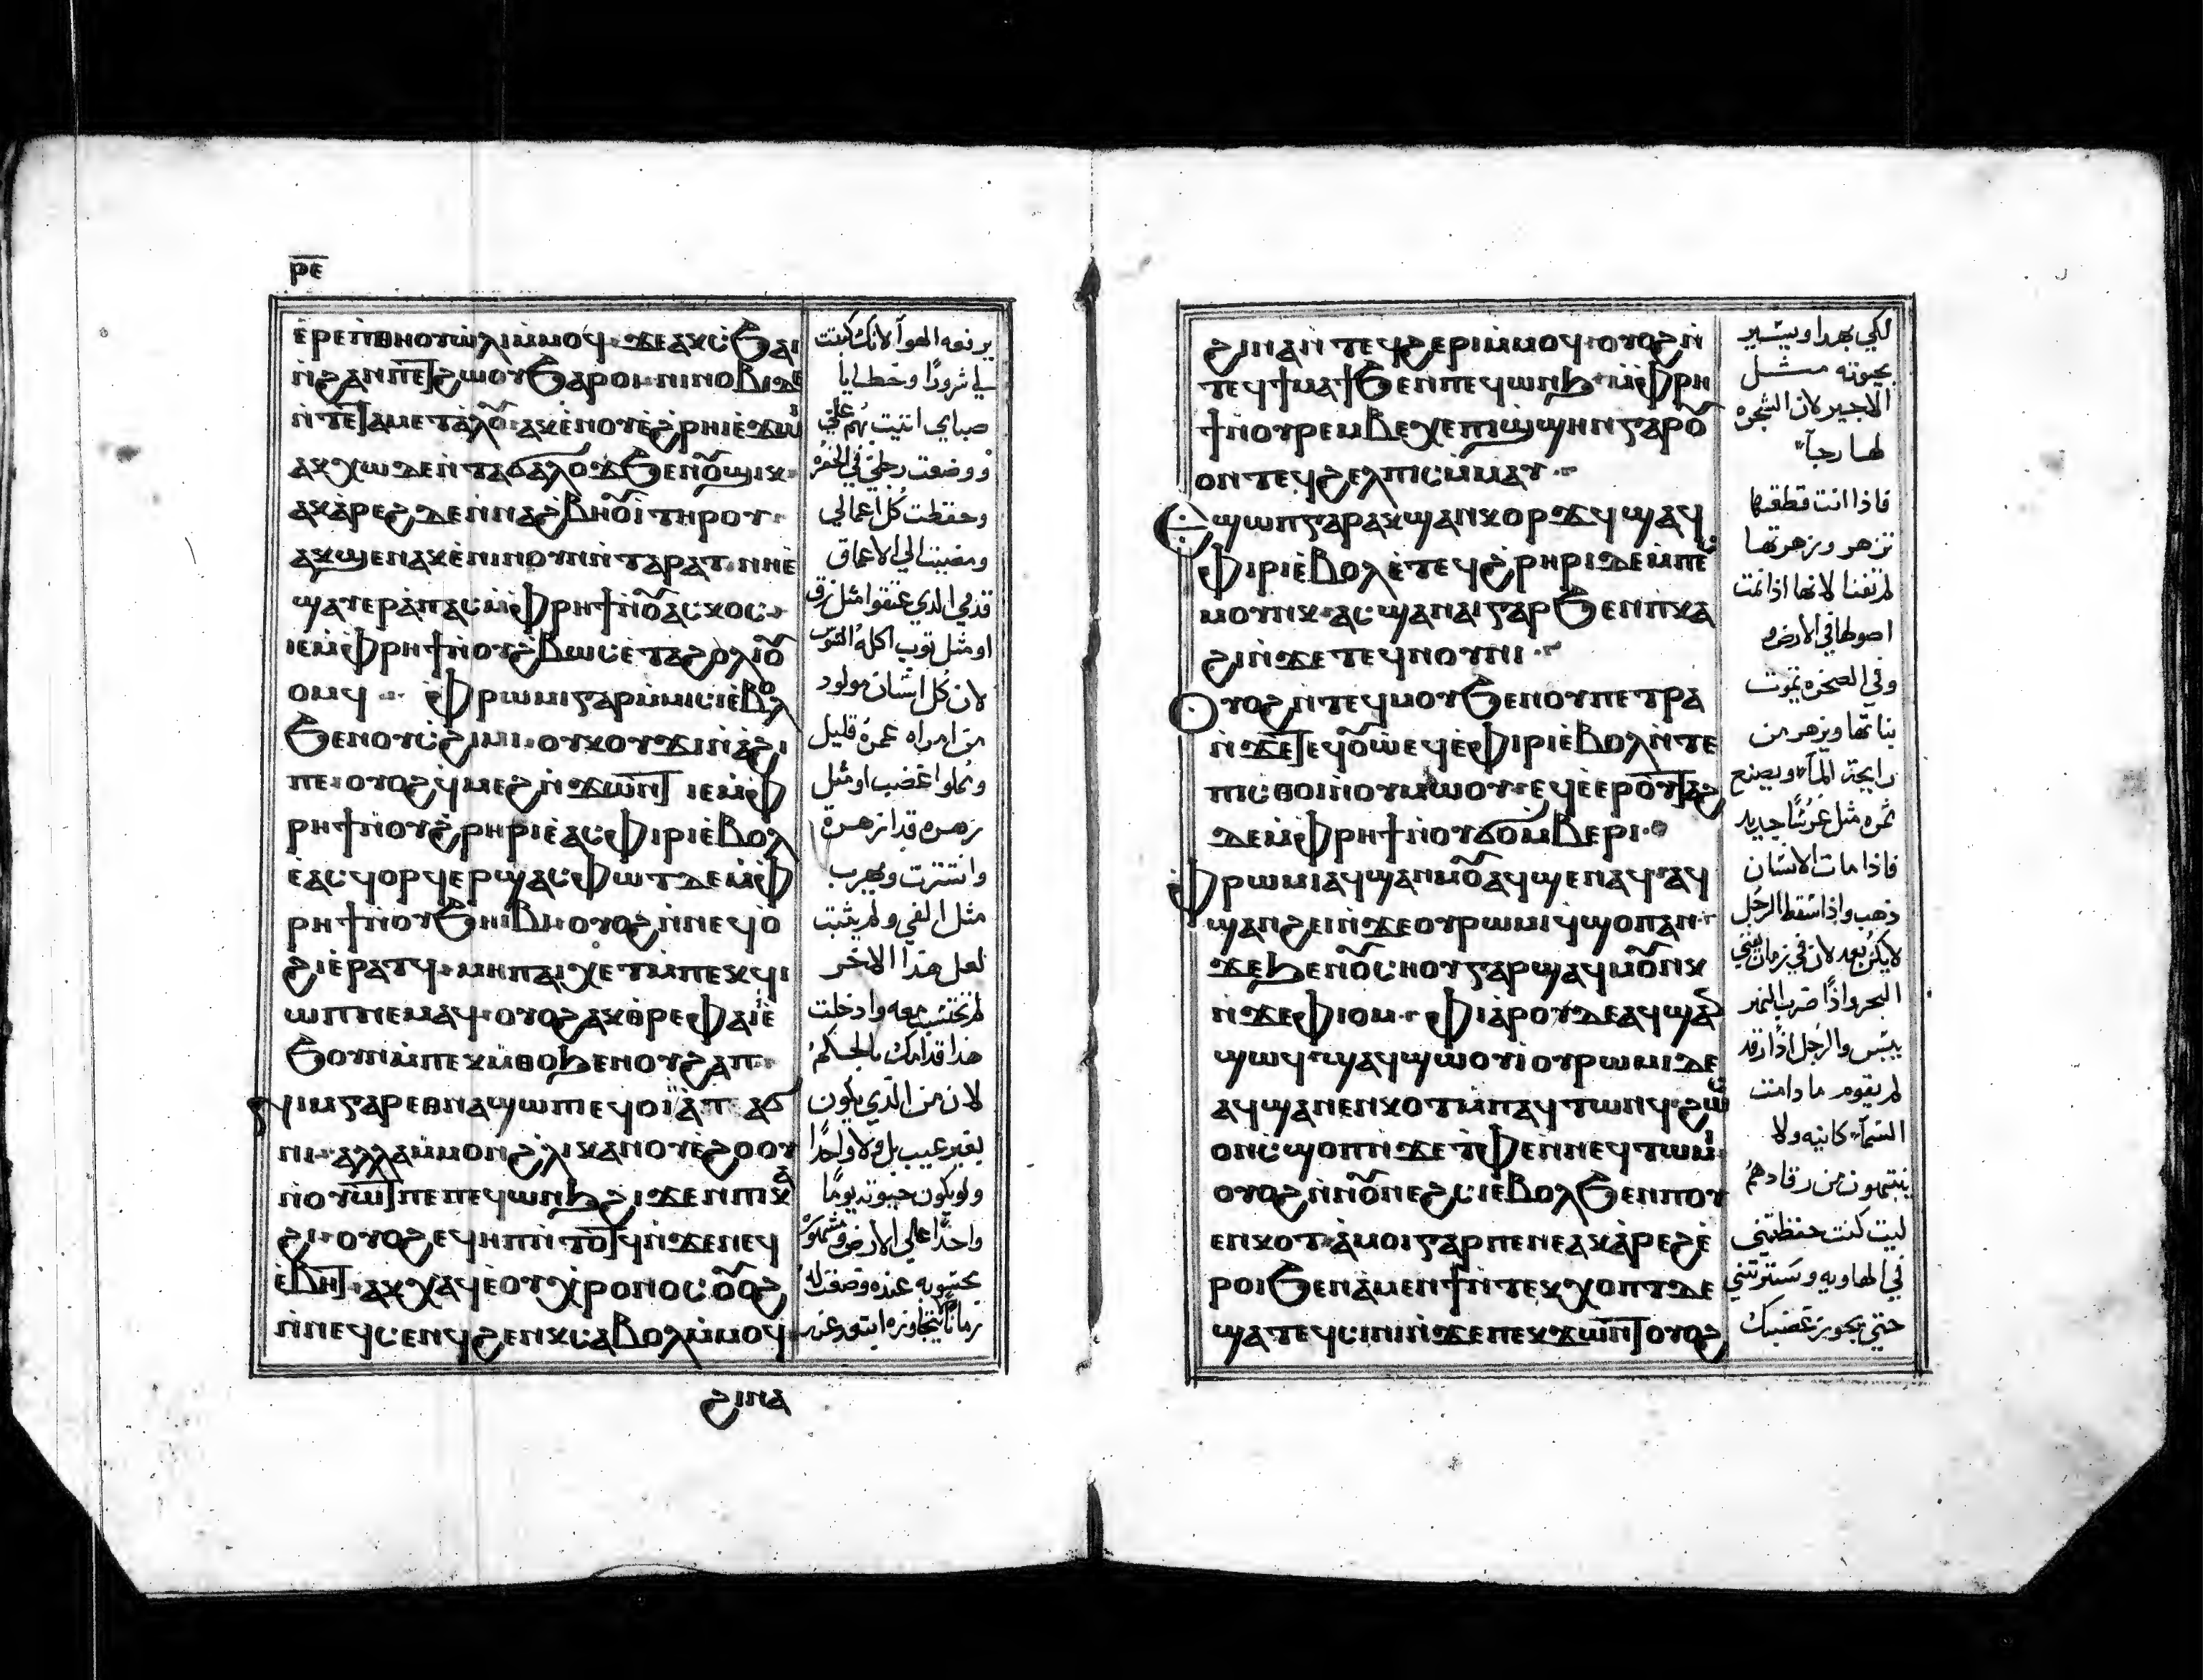 ⲣⲉ
ⲉ̀ⲣⲉⲡⲑⲏⲟⲩⲱⲗⲓⲙ̀ⲙⲟϥ· ϫⲉⲁⲕⲥϧⲁⲓ
ⲛ̀ϩⲁⲛⲡⲉⲧϩⲱⲟⲩϧⲁⲣⲟⲓ· ⲛⲓⲛⲟⲃⲓⲇⲉ
ⲛ̀ⲧⲉⲧⲁⲙⲉⲧⲁ̀ⲗⲟⲩ· ⲁⲕⲉ̀ⲛⲟⲩⲉ̀ϩ̀ⲣⲏⲓⲉ̀ϫⲱⲓ̀
ⲁⲕⲭⲱⲇⲉⲛ̀ⲧⲁϭⲁⲗⲟϫϧⲉⲛⲟⲩϣⲓⲕ·
ⲁⲕⲁ̀ⲣⲉϩⲇⲉⲛ̀ⲛⲁϩⲃⲏⲟⲩⲓ̀ⲧⲏⲣⲟⲩ·
ⲁⲕϣⲉⲛⲁⲕⲉ̀ⲛⲓⲛⲟⲩⲛⲓⲛ̀ⲧⲁⲣⲁⲧ· ⲛⲏⲉ̀
ϣⲁⲩⲉⲣⲁ̀ⲡⲁⲥⲙ̀ⲫⲣⲏϯⲛ̀ⲟⲩⲁⲥⲕⲟⲥ·
ⲓⲉⲙ̀ⲫⲣⲏϯⲛ̀ⲟⲩϩⲃⲱⲥⲉ̀ⲧⲁϩⲟⲗⲓⲟⲩ
ⲟⲙϥ ·· ⲫⲣⲱⲙⲓⲅⲁⲣⲙ̀ⲙⲓⲥⲓⲉ̀ⲃⲟⲗ
ϧⲉⲛⲟⲩⲥ̀ϩⲓⲙⲓ· ⲟⲩⲕⲟⲩϫⲓⲛ̀ⲁ̀ϩⲓ
ⲡⲉ· ⲟⲩⲟϩϥ̀ⲙⲉϩⲛ̀ϫⲱⲛⲧ ⲓⲉⲙ̀ⲫ
ⲣⲏϯⲛ̀ⲟⲩϩ̀ⲣⲏⲣⲓⲉ̀ⲁⲥⲫⲓⲣⲓⲉ̀ⲃⲟⲗ
ⲉ̀ⲁⲥϥⲟⲣϥⲉⲣϣⲁⲥⲫⲱⲧⲇⲉⲙ̀ⲫ
ⲣⲏϯⲛ̀ⲟⲩϧⲏⲓⲃⲓ· ⲟⲩⲟϩⲛ̀ⲛⲉϥⲟ̀
ϩⲓⲉ̀ⲣⲁⲧϥ· ⲙⲏⲡⲁⲓⲭⲉⲧⲙ̀ⲡⲉⲕϥⲓ
ⲱⲡⲛⲉⲙⲁϥ· ⲟⲩⲟϩⲁⲕⲑ̀ⲣⲉⲫⲁⲓⲓ̀ⲉ̀
ϧⲟⲩⲛⲙ̀ⲡⲉⲕⲙ̀ⲑⲟϧⲉⲛⲟⲩϩⲁⲡ·
ⲛⲓⲙⲅⲁⲣⲉⲑⲛⲁϣⲱⲡⲓⲉϥⲟⲓⲛ̀ⲁⲧ ⲁϭ
ⲛⲓ· ⲁⲗⲗⲁⲙ̀ⲙⲟⲛϩ̀ⲗⲓⲕⲁⲛⲟⲩⲉ̀ϩⲟⲟⲩ
ⲛⲟⲩⲱⲧⲡⲉⲡⲉϥⲱⲛϧϩⲓϫⲉⲛⲡⲓⲕⲁ̀
ϩⲓ· ⲟⲩⲟϩⲉϥⲏⲡⲛ̀ⲧⲟⲧϥⲛ̀ϫⲉⲛⲉϥ
ⲉ̀ⲃⲏⲧ· ⲁⲕⲭⲁϥⲉ̀ⲟⲩⲭⲣⲟⲛⲟⲥ ⲟⲩⲟϩ
ⲛ̀ⲛⲉϥⲥⲉⲛϥϩⲉⲛⲕⲥⲁⲃⲟⲗⲙ̀ⲙⲟϥ·
ϩⲓⲛⲁ
يرفعه الهوآ لانك كتبت
لي شرورًا وخطايا
صباي اتيت بهم علي
ووضعت رجلي في الحفره
وحفظت كل اعمالي
ومضيت الي الاعماق
قدمي الذي عتقوا مثل زق
او مثل توب اكله السوس
لان كل انسان مولود
من امراه عمره قليل
ومملوا غضب او مثل
زهره قد ازهرة
وانتثرت ويهرب
مثل الفي ولم يثبت
لعل هذا الاخر
لم تحتسب معه وادخلت
هذا قدامك بالحكم
لان من الذي يكون
بغير عيب بل ولا واحدًا
ولو يكون حيوته يومًا
واحدًا علي الارض وشهوره
محسوبه عنده وضعت له
زمانًا لا يتجاوزه ابتعد عنه
ϩⲓⲛⲁⲛ̀ⲧⲉϥϩⲉⲣⲓⲙ̀ⲙⲟϥ· ⲟⲩⲟϩⲛ̀
ⲧⲉϥϯⲙⲁϯϧⲉⲛⲡⲉϥⲱⲛϧ· ⲙ̀ⲫⲣⲏ
ϯⲛ̀ⲟⲩⲣⲉⲙⲃⲉⲭⲉⲡⲓϣϣⲏⲛⲅⲁⲣⲟⲩ
ⲟⲛⲧⲉϥϩⲉⲗⲡⲓⲥⲙ̀ⲙⲁⲩ··
Ⲉϣⲱⲡⲅⲁⲣⲁⲕϣⲁⲛⲕⲟⲣϫϥϣⲁϥ
ⲫⲓⲣⲓⲉ̀ⲃⲟⲗⲉ̀ⲧⲉϥϩ̀ⲣⲏⲣⲓⲇⲉⲙ̀ⲡⲉⲥ
ⲙⲟⲩⲛⲕ· ⲁⲥϣⲁⲛⲁⲓⲅⲁⲣϧⲉⲛⲡⲕⲁ
ϩⲓⲛ̀ϫⲉⲧⲉϥⲛⲟⲩⲛⲓ··
Ⲟⲩⲟϩⲛ̀ⲧⲉϥⲙⲟⲩϧⲉⲛⲟⲩⲡⲉⲧⲣⲁ
ⲛ̀ϫⲉⲧⲉϥⲟⲩⲱ̀ⲉϥⲉ̀ⲫⲓⲣⲓⲉ̀ⲃⲟⲗⲛ̀ⲧⲉ
ⲡⲓⲥⲑⲟⲓⲛ̀ⲟⲩⲙⲱⲟⲩ· ⲉϥⲉ̀ⲉⲣⲟⲩⲧⲁϩ
ⲇⲉⲙ̀ⲫⲣⲏϯⲛ̀ⲟⲩϭⲟⲙⲃⲉⲣⲓ·
ⲫⲣⲱⲙⲓⲁϥϣⲁⲛⲙⲟⲩⲁϥϣⲉⲛⲁϥ· ⲁϥ
ϣⲁⲛϩⲉⲓⲛ̀ϫⲉⲟⲩⲣⲱⲙⲓϥ̀ϣⲟⲡⲁⲛ·
ϫⲉϧⲉⲛⲟⲩⲥⲏⲟⲩⲅⲁⲣϣⲁϥⲙⲟⲩⲛⲕ
ⲛ̀ϫⲉⲫⲓⲟⲙ· ⲫⲓⲁⲣⲟⲩⲇⲉⲁϥϣⲁⲛ
ϣⲱϥ· ϣⲁϥϣⲱⲟⲩⲓ̀ⲟⲩⲣⲱⲙⲓⲇⲉ
ⲁϥϣⲁⲛⲉⲛⲕⲟⲧⲙ̀ⲡⲁϥⲧⲱⲛϥ· ϩⲱⲥ
ⲟⲛⲥ̀ϣⲟⲡⲛ̀ϫⲉⲧ̀ⲫⲉⲛ̀ⲛⲉϥⲧⲱⲛ
ⲟⲩⲟϩⲛ̀ⲛⲟⲩⲛⲉϩⲥⲓⲉ̀ⲃⲟⲗϧⲉⲛⲡⲟⲩ
ⲉⲛⲕⲟⲧ· ⲁ̀ⲙⲟⲓⲅⲁⲣⲡⲉⲛⲉⲁⲕⲁ̀ⲣⲉϩⲉ̀
ⲣⲟⲓϧⲉⲛⲁ̀ⲙⲉⲛϯⲛ̀ⲧⲉⲕⲭⲟⲡⲧⲇⲉ
ϣⲁⲧⲉϥⲥⲓⲛⲓⲛ̀ϫⲉⲡⲉⲕϫⲱⲛⲧⲟⲩⲟϩ
لكي يهدا ويسير
بحيوته مثل
الاجير لان الشجره
لها رجآ
فاذا انت قطفتها
تزهر وزهرتها
لم تفنا لانها اذا نمت
اصولها في الارض
وفي الصخره تموت
نباتها ويزهر من
رايحة المآ ويصنع
ثمره مثل غرسًا جديد
فاذا مات الانسان
ذهب واذا سقط الرجل
لا يكن بعد لان في زمان يفني
البحر واذا خرب النهر
ييبس والرجل اذا رقد
لم يقوم ما دامت
السمآ كاينه ولا
ينتبهون من رقادهم
ليت كنت حفظتني
في الهاويه وسترتني
حتي يجوز غضبك